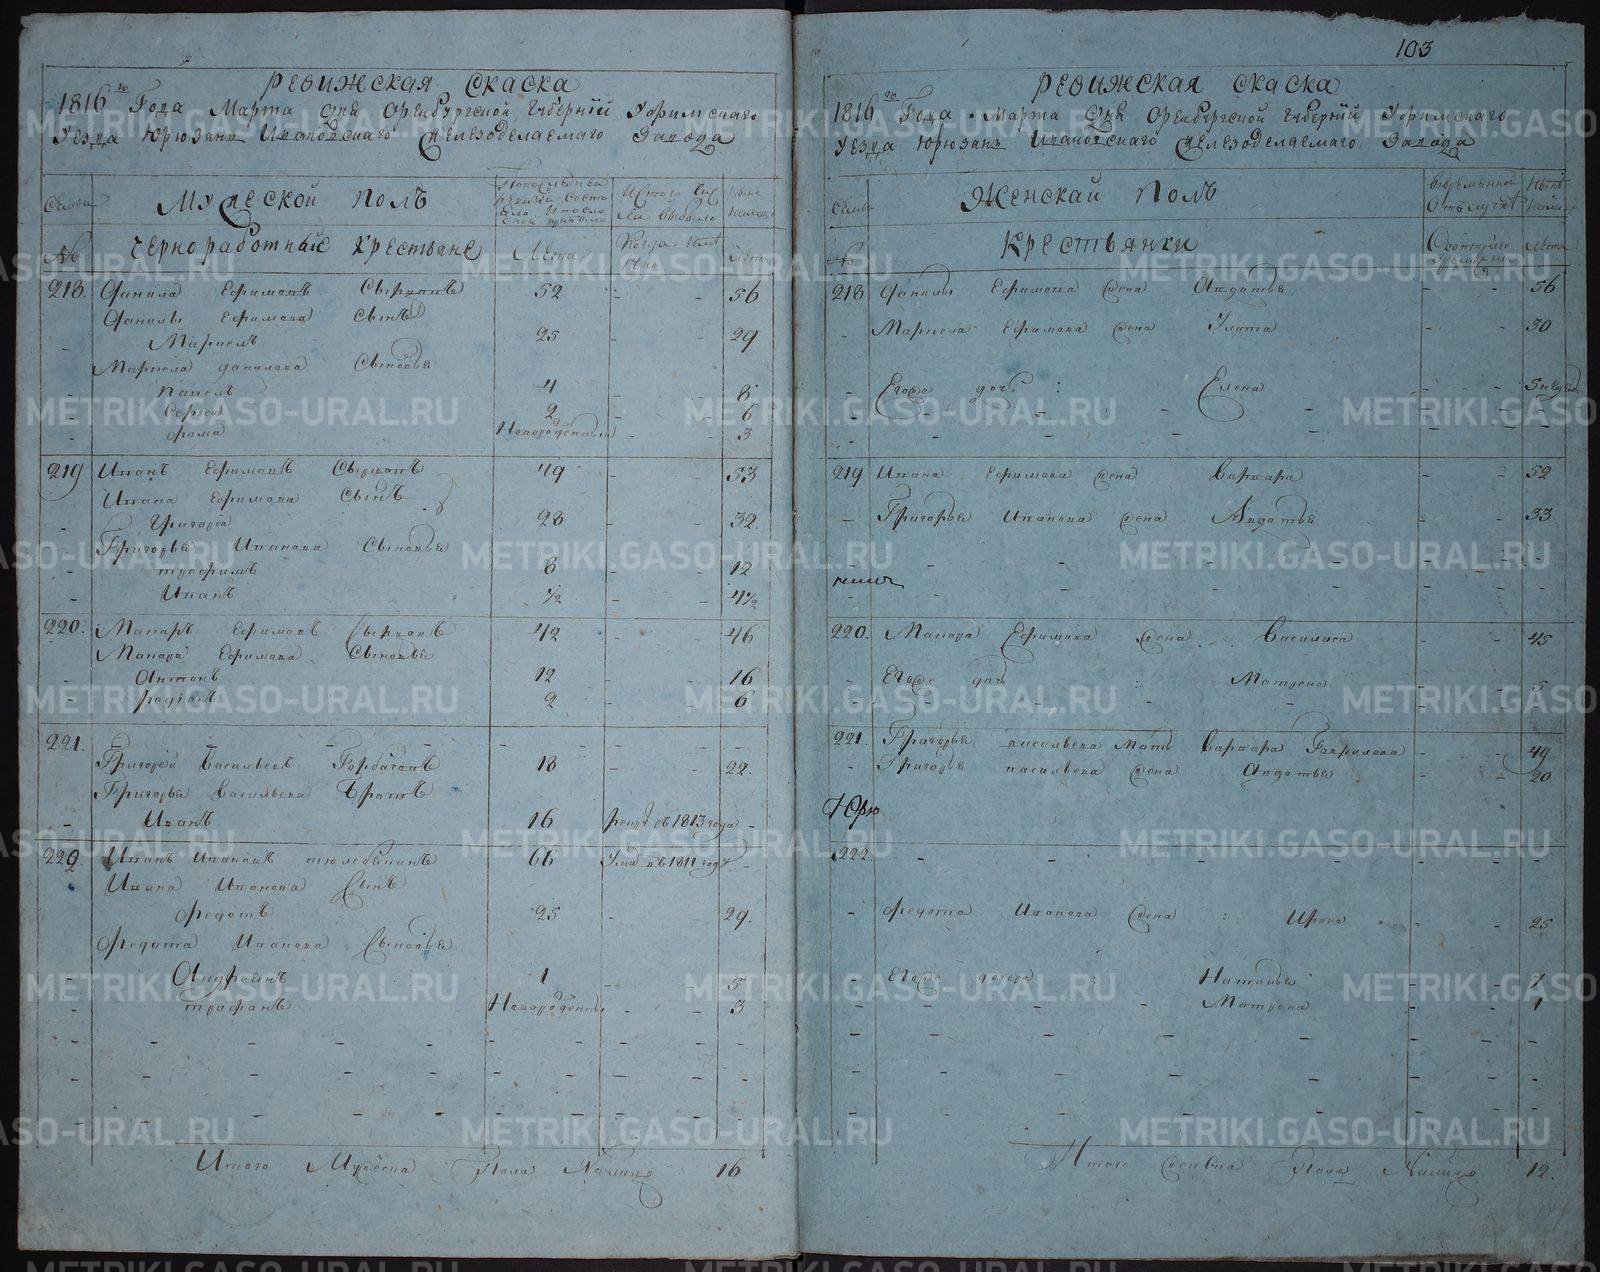 103
РЕВИЖСКАЯ СКАСКА
1816 го Года Марта дня Оренбургской Губернїи Уфимскаго
Уезда Юрюзань Ивановскаго железоделаемаго Завода
Семьи Мужеской полъ
№ Чернорабочные Крестьяне Лета Лета
218. Данила Ефимовъ Сырковъ 52 - - 56
Данилы Ефимова Сынъ
- Маркелъ 25 - - 29
Маркела Данилова Сыновья
- Павелъ 4 - - 8
- Сергей 2 - - 6
- Фома Новорожденный - 3
219 Иванъ Ефимовъ Сырковъ 49 - - 53
Ивана Ефимова Сынъ
- Григорей 28 - - 32.
Григорья Иванова Сыновья
- Трофимъ 8 - - 12
- Иванъ 1/2 - - 4 1/2
220. Макаръ Ефимовъ Сырковъ 42 - - 46
Макара Ефимова Сыновья
- Антонъ 12 - - 16
- Родїонъ 2 - - 6
221.
Григорей Васильевъ Горбачовъ 18 - - 22.
Григорья Васильева братъ
- Иванъ 16 рекрут въ 1813 года -
222 Иванъ Ивановъ 66 Умре въ 1811 году -
Ивана Иванова Сынъ
Федотъ 25 - - 29.
Федота Иванова Сыновья
- Андреянъ 1 - - 5
- Новорожденны - - 3
Итого Мужеска Пола Налицо 16
РЕВИЖСКАЯ СКАСКА
1816 го Года Марта Дня Оренбургской Губернїи Уфимскаго
Уезда Юрюзань Ивановскаго железоделаемаго Завода
Семьи Женскай полъ
№ Крестьянки Лета
218 Данилы Ефимова жена Авдотья - - 56
- Маркела Ефимова жена Улита - - 30
- Егоже дочь : Елена - - 5 недель
219 Ивана Ефимова жена Варвара - - 52
- Григорья Иванова жена Авдотья - - 33
220. Макара Ефимова жена Василиса - - 45
- Егоже дочь : Матрена - - 5
221 Григорья васильева мать Варвара Гаврилова - - 49
- Григорья васильева жена Авдотья - - 20
Юрю
222
- Федота Иванова жена : Ирина - - 25
- Егоже дочери : Наталья - - 7
- Матрена - - 1
Итого женска Пола Налицо 12.
METRIKI.GASO-URAL.RU